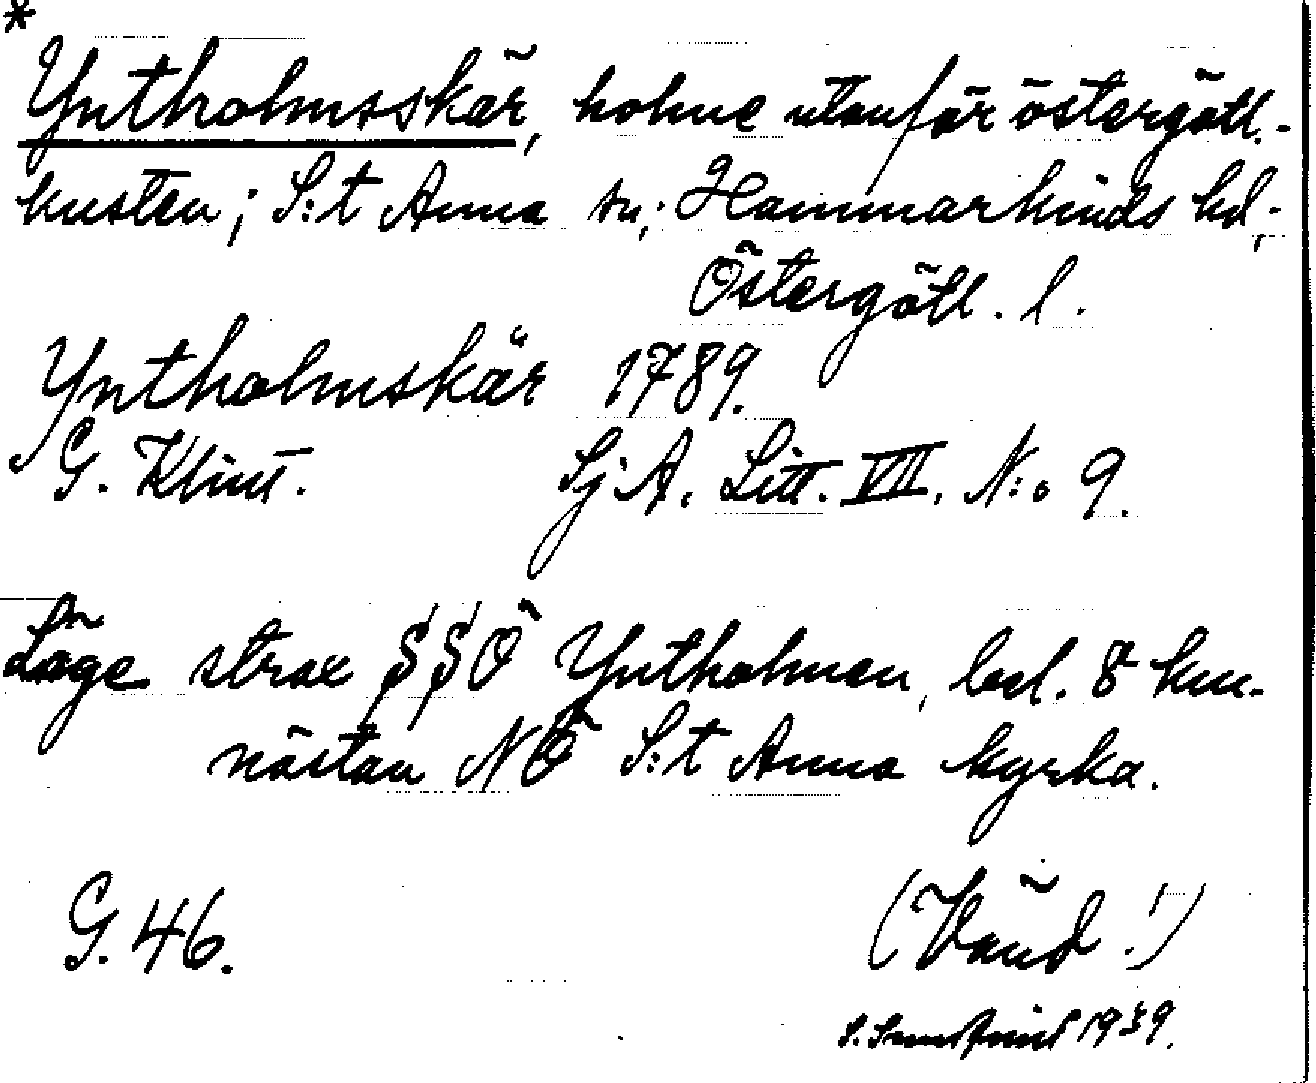 *
Yntholmsskär, holme utanför östergötl.-
kusten; S:t Anna sn; Hammarkinds hd,-
Östergötl. l.
Yntholmskär 1789.
G. Klint. Sj A. Litt. VII. N:o 9.
Läge strax SSÖ Yntholmen, bel. 8 km.
nästan NÖ S:t Anna kyrka.
G. 46. (Vänd!)
S. 1939.